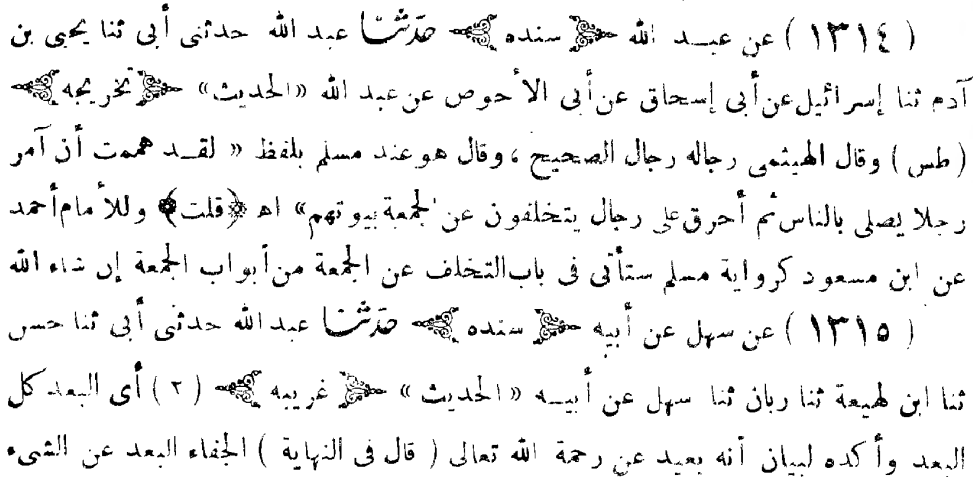 ( ١٣١٤ ) عن عبد الله ﴿ سنده ﴾ حدثنا عبد الله حدثنى أبى ثنا يحيى بن
آدم ثنا إسرائيل عن أبى إسحاق عن أبى الأحوص عن عبد الله «الحديث» ﴿ تخريجه ﴾
(طس) وقال الهيثمى رجاله رجال الصحيح ، وقال هو عند مسلم بلفظ « لقد هممت أن آمر
رجلا يصلى بالناس ثم أحرق على رجال يتخلفون عن الجمعة بيوتهم» اه ﴿قلت﴾ وللأمام أحمد
عن ابن مسعود كرواية مسلم ستأتى فى باب التخلف عن الجمعة من أبواب الجمعة إن شاء الله
( ١٣١٥ ) عن سهل عن أبيه ﴿ سنده ﴾ حدثنا عبد الله حدثنى أبى ثنا حسن
ثنا ابن لهيعة ثنا ربان ثنا سهل عن أبيه «الحديث» ﴿ غريبه ﴾ ( ٢ ) أى البعد كل
البعد وأكده لبيان أنه بعيد عن رحمة الله تعالى ( قال فى النهاية ) الجفاء البعد عن الشىء